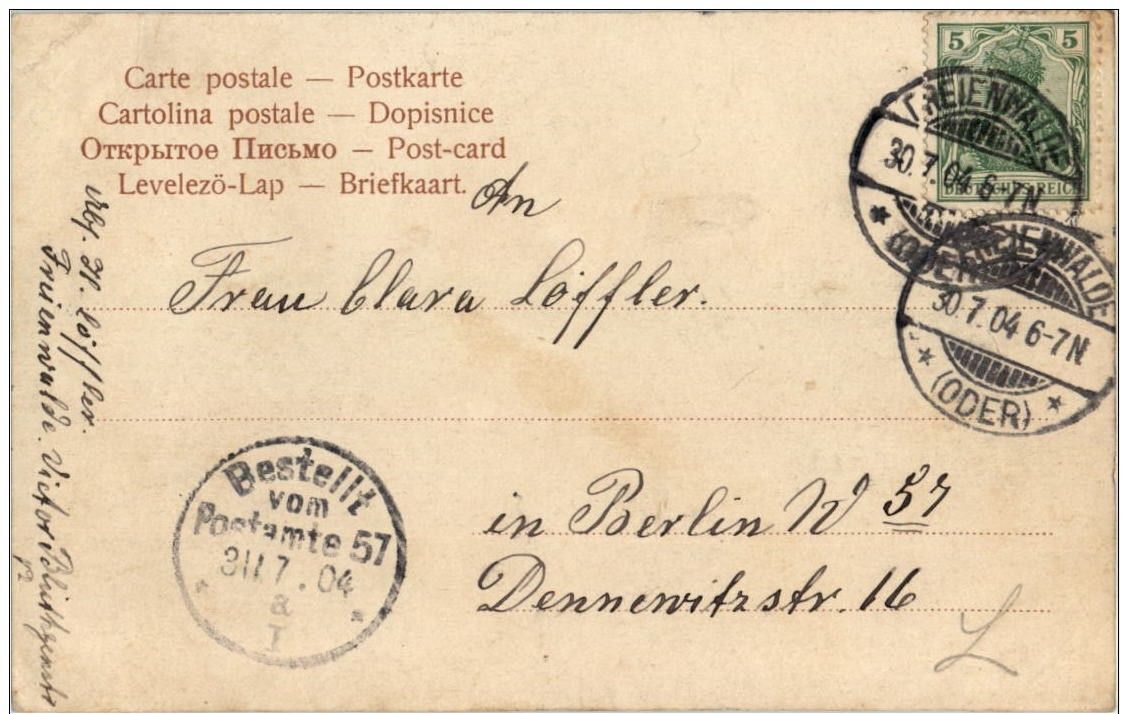 Carte postale — Postkarte
Cartolina postale — Dopisnice
Открытое Письмо — Post-card
Levelező-Lap — Briefkaart.
5 5
DEUTSCHES REICH
FREIENWALDE
30.7.04 6-7N
* (ODER)
FREIENWALDE
30.7.04 6-7N
* (ODER) *
An
Frau Clara Löffler.
in Berlin W 57
Dennewitzstr. 16
L
Bestellt
vom
Postamte 57
31.7.04
a
I
Löffler.
Freienwalde. Victor Blüthgenstr